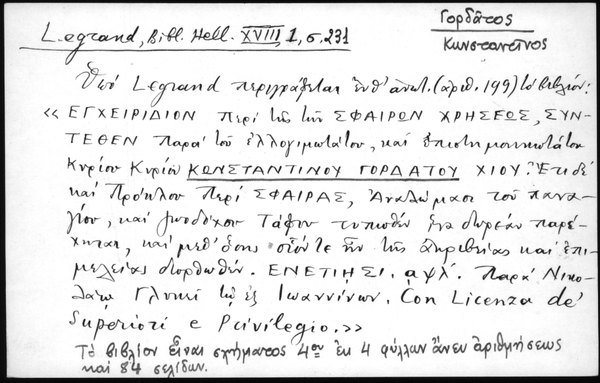 Γορδᾶτος
Κωνσταντῖνος
Legrand, Bibl. Hell. XVIII, 1, σ. 231
Ὑπὸ Legrand περιγράφεται ἐνθ' ἀνωτ. (ἀριθ. 199) τὸ βιβλίον:
« ΕΓΧΕΙΡΙΔΙΟΝ περὶ τῆς τῶν ΣΦΑΙΡΩΝ ΧΡΗΣΕΩΣ, ΣΥΝ-
ΤΕΘΕΝ παρὰ τοῦ ἐλλογιμωτάτου, καὶ ἐπιστημονικωτάτου
Κυρίου Κυρίου ΚΩΝΣΤΑΝΤΙΝΟΥ ΓΟΡΔΑΤΟΥ ΧΙΟΥ. Ἔτι δὲ
καὶ Πρόκλου περὶ ΣΦΑΙΡΑΣ, Ἀναλώμασι τοῦ πανα-
γίου, καὶ ζωοδόχου Τάφου τυπωθὲν ἵνα δωρεὰν παρέ-
χηται, καὶ μεθ' ὅσης οἷόν τε ἦν τῆς ἀκριβείας καὶ ἐπι-
μελείας διορθωθέν. ΕΝΕΤΙΗΣΙ. αψλ'. Παρὰ Νικο-
λάῳ Γλυκεῖ τῷ ἐξ Ἰωαννίνων. Con Licenza de'
Superiori e Privilegio.»
Τὸ βιβλίον εἶναι σχήματος 4ου ἐκ 4 φύλλων ἄνευ ἀριθμήσεως
καὶ 84 σελίδων.